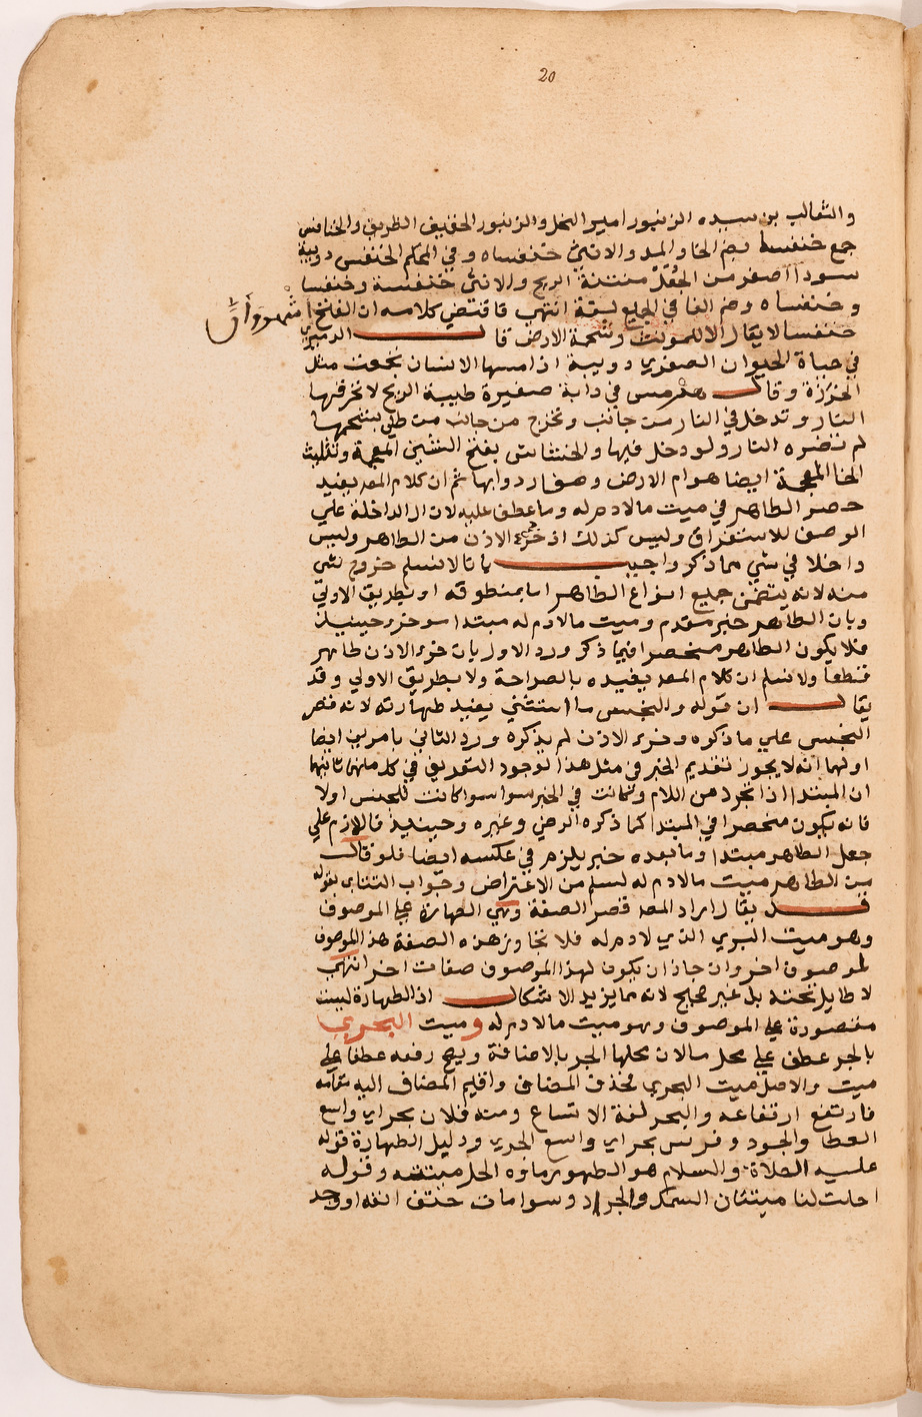 20
والثعالب بن سيده الزنبور امير النحل والزنبور الخفيف الظريف والخنافس
جمع خنفسا بضم الخا والمد والانثى خنفساه وفي المحكم الخنفس دويبة
سودا اصغر من الجعل منتنة الريح والانثى خنفسة وخنفسا
وخنفساه وضم الفا في الجميع لغة انتهى فاقتضى كلامه ان الفتح اشهر وان
خنفسا لا يقال الا للمونث وشحمة الارض قال الدميري
في حياة الحيوان الصغرى دويبة اذا مسها الانسان تجمعت مثل
الخرزة وقال هرمس في دابة صغيرة طيبة الريح لا تحرقها
النار وتدخل في النار من جانب وتخرج من جانب من طلي بشحمها
لم تضره النار ولو دخل فيها والخشاش بفتح الشين المعجمة وتثليث
الخا المعجمة ايضا هوام الارض وصغار دوابها ثم ان كلام المص يفيد
حصر الطاهر في ميت ما لا دم له وما عطف عليه لان ال الداخلة على
الوصف للاستغراق وليس كذلك اذ خرء الاذن من الطاهر وليس
داخلا في شي مما ذكر واجيب بانا لا نسلم خروج شي
منه لانه يتضمن جميع انواع الطاهر اما بمنطوقه او بطريق الاولى
وبان الطاهر خبر مقدم وميت ما لا دم له مبتدا موخر وحينيذ
فلا يكون الطاهر منحصرا فيما ذكر ورد الاول بان خرء الاذن طاهر
قطعا ولا نسلم ان كلام المص يفيده بالصراحة ولا بطريق الاولى وقد
يقال ان قوله والنجس ما استثني يفيد طهارته لانه قصر
النجس على ما ذكره وخرء الاذن لم يذكره ورد الثاني بامرين ايضا
اولهما انه لا يجوز تقديم الخبر في مثل هذا لوجود التعريف في كل منهما ثانيهما
ان المبتدا اذا تجرد من اللام وكانت في الخبر سوا سوا كانت للجنس اولا
فانه يكون منحصرا في المبتدا كما ذكره الرضي وغيره وحينيذ فاللازم على
جعل الطاهر مبتدا وما بعده خبر يلزم في عكسه ايضا فلو قال
من الطاهر ميت ما لا دم له لسلم من الاعتراض وجواب التتاي بقوله
قد يقال اراد المص قصر الصفة وهي الطهارة على الموصوف
وهو ميت البري الذي لا دم له فلا تجاوز هذه الصفة هذا الموصوف
لموصوف اخر وان جاز ان يكون لهذا الموصوف صفات اخر انتهى
لا طايل تحته بل غير صحيح لانه مما يزيد الاشكال اذ الطهارة ليست
مقصورة على الموصوف وهو ميت ما لا دم له وميت البحري
بالجر عطف على محل ما لان محلها الجر بالاضافة ويصح رفعه عطفا على
ميت والاصل ميت البحري فحذف المضاف واقيم المضاف اليه مقامه
فارتفع ارتفاعه والبحر لغة الاتساع ومنه فلان بحر اي واسع
العطا والجود وفرس بحر اي واسع الجري ودليل الطهارة قوله
عليه الصلاة والسلام هو الطهور ماوه الحل ميتته وقوله
احلت لنا ميتتان السمك والجراد وسوا مات حتف انفه او وجد